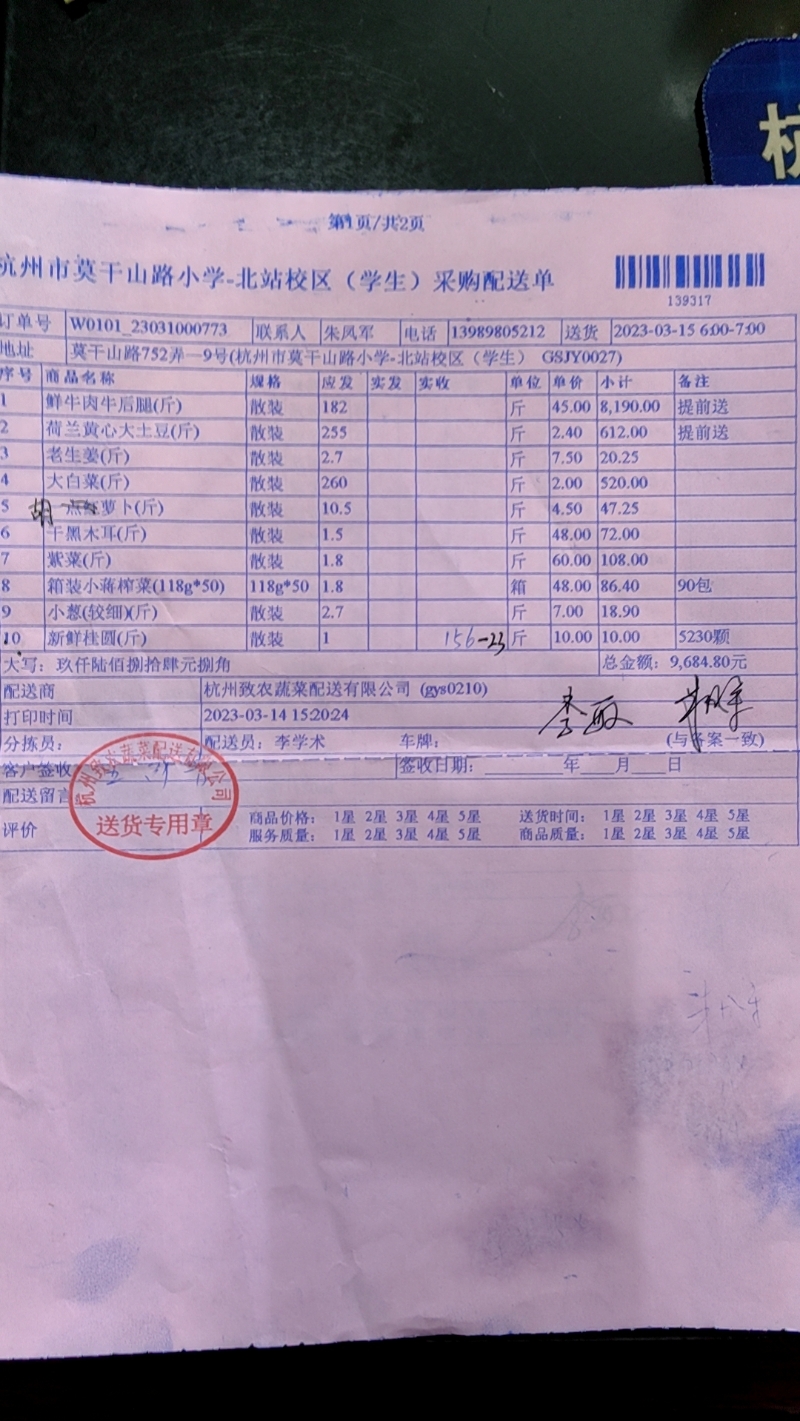 杭
第1页/共2页
杭州市莫干山路小学-北站校区（学生）采购配送单
139317
订单号 W0101_23031000773 联系人 朱凤军 电话 13989805212 送货 2023-03-15 6:00-7:00
地址 莫干山路752弄一9号(杭州市莫干山路小学-北站校区（学生） GSJY0027)
序号 商品名称 规格 应发 实发 实收 单位 单价 小计 备注
1 鲜牛肉牛后腿(斤) 散装 182 斤 45.00 8,190.00 提前送
2 荷兰黄心大土豆(斤) 散装 255 斤 2.40 612.00 提前送
3 老生姜(斤) 散装 2.7 斤 7.50 20.25
4 大白菜(斤) 散装 260 斤 2.00 520.00
5 胡 萝卜(斤) 散装 10.5 斤 4.50 47.25
6 干黑木耳(斤) 散装 1.5 斤 48.00 72.00
7 紫菜(斤) 散装 1.8 斤 60.00 108.00
8 箱装小蒋榨菜(118g*50) 118g*50 1.8 箱 48.00 86.40 90包
9 小葱(较细)(斤) 散装 2.7 斤 7.00 18.90
10 新鲜桂圆(斤) 散装 1 156-23 斤 10.00 10.00 5230颗
大写：玖仟陆佰捌拾肆元捌角 总金额：9,684.80元
配送商 杭州致农蔬菜配送有限公司 (gys0210)
打印时间 2023-03-14 15:20:24
李敏
分拣员： 配送员：李学术 车牌： (与备案一致)
客户签收 签收日期：____年__月__日
配送留言
杭州致农蔬菜配送有限公司
送货专用章
评价 商品价格： 1星 2星 3星 4星 5星 送货时间： 1星 2星 3星 4星 5星
服务质量： 1星 2星 3星 4星 5星 商品质量： 1星 2星 3星 4星 5星